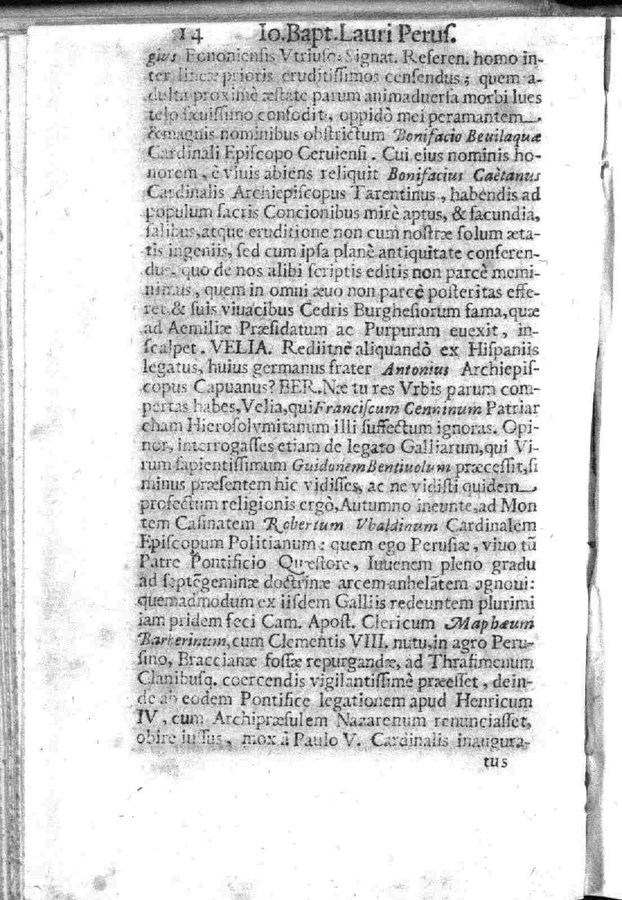 14 Io. Bapt. Lauri Perus.
gius Bononiensis Vtriusq; Signat. Referen. homo in-
ter lineæ prioris eruditissimos censendus; quem a-
dulta proximè æstate parum animaduersa morbi lues
telo sæuissimo confodit, oppidò mei peramantem
& magnis nominibus obstrictum Bonifacio Beuilaquæ
Cardinali Episcopo Ceruiensi. Cui eius nominis ho-
norem, è viuis abiens reliquit Bonifacius Caëtanus
Cardinalis Archiepiscopus Tarentinus, habendis ad
populum sacris Concionibus mirè aptus, & facundia,
salibus, atque eruditione non cum nostræ solum æta-
tis ingeniis, sed cum ipsa planè antiquitate conferen-
dus. quo de nos alibi scriptis editis non parcè memi-
nimus, quem in omni æuo non parcè posteritas effe-
ret & suis viuacibus Cedris Burghesiorum fama, quæ
ad Aemiliæ Præsidatum ac Purpuram euexit, in-
scalpet. VELIA. Rediitnè aliquandò ex Hispaniis
legatus, huius germanus frater Antonius Archiepis-
copus Capuanus? BER. Næ tu res Vrbis parum com-
pertas habes, Velia, qui Franciscum Cenninum Patriar
cham Hierosolymitanum illi suffectum ignoras. Opi-
nor, interrogasses etiam de legato Galliarum, qui Vi-
rum sapientissimum Guidonem Bentiuolum præcessit, si
minus præsentem hic vidisses, ac ne vidisti quidem
profectum religionis ergò, Autumno ineunte, ad Mon
tem Casinatem Robertum Vbaldinum Cardinalem
Episcopum Politianum: quem ego Perusiæ, viuo tũ
Patre Pontificio Quæstore, Iuuenem pleno gradu
ad septẽgeminæ doctrinæ arcem anhelãtem agnoui:
quemadmodum ex iisdem Galliis redeuntem plurimi
iam pridem feci Cam. Apost. Clericum Maphæum
Barberinum, cum Clementis VIII. nutu, in agro Peru-
sino, Braccianæ fossæ repurgandæ, ad Thrasimenum
Clanibusq. coercendis vigilantissimè præesset, dein-
de ab eodem Pontifice legationem apud Henricum
IV, cum Archipræsulem Nazarenum renunciasset,
obire iussus, mox à Paulo V. Cardinalis inaugura-
tus